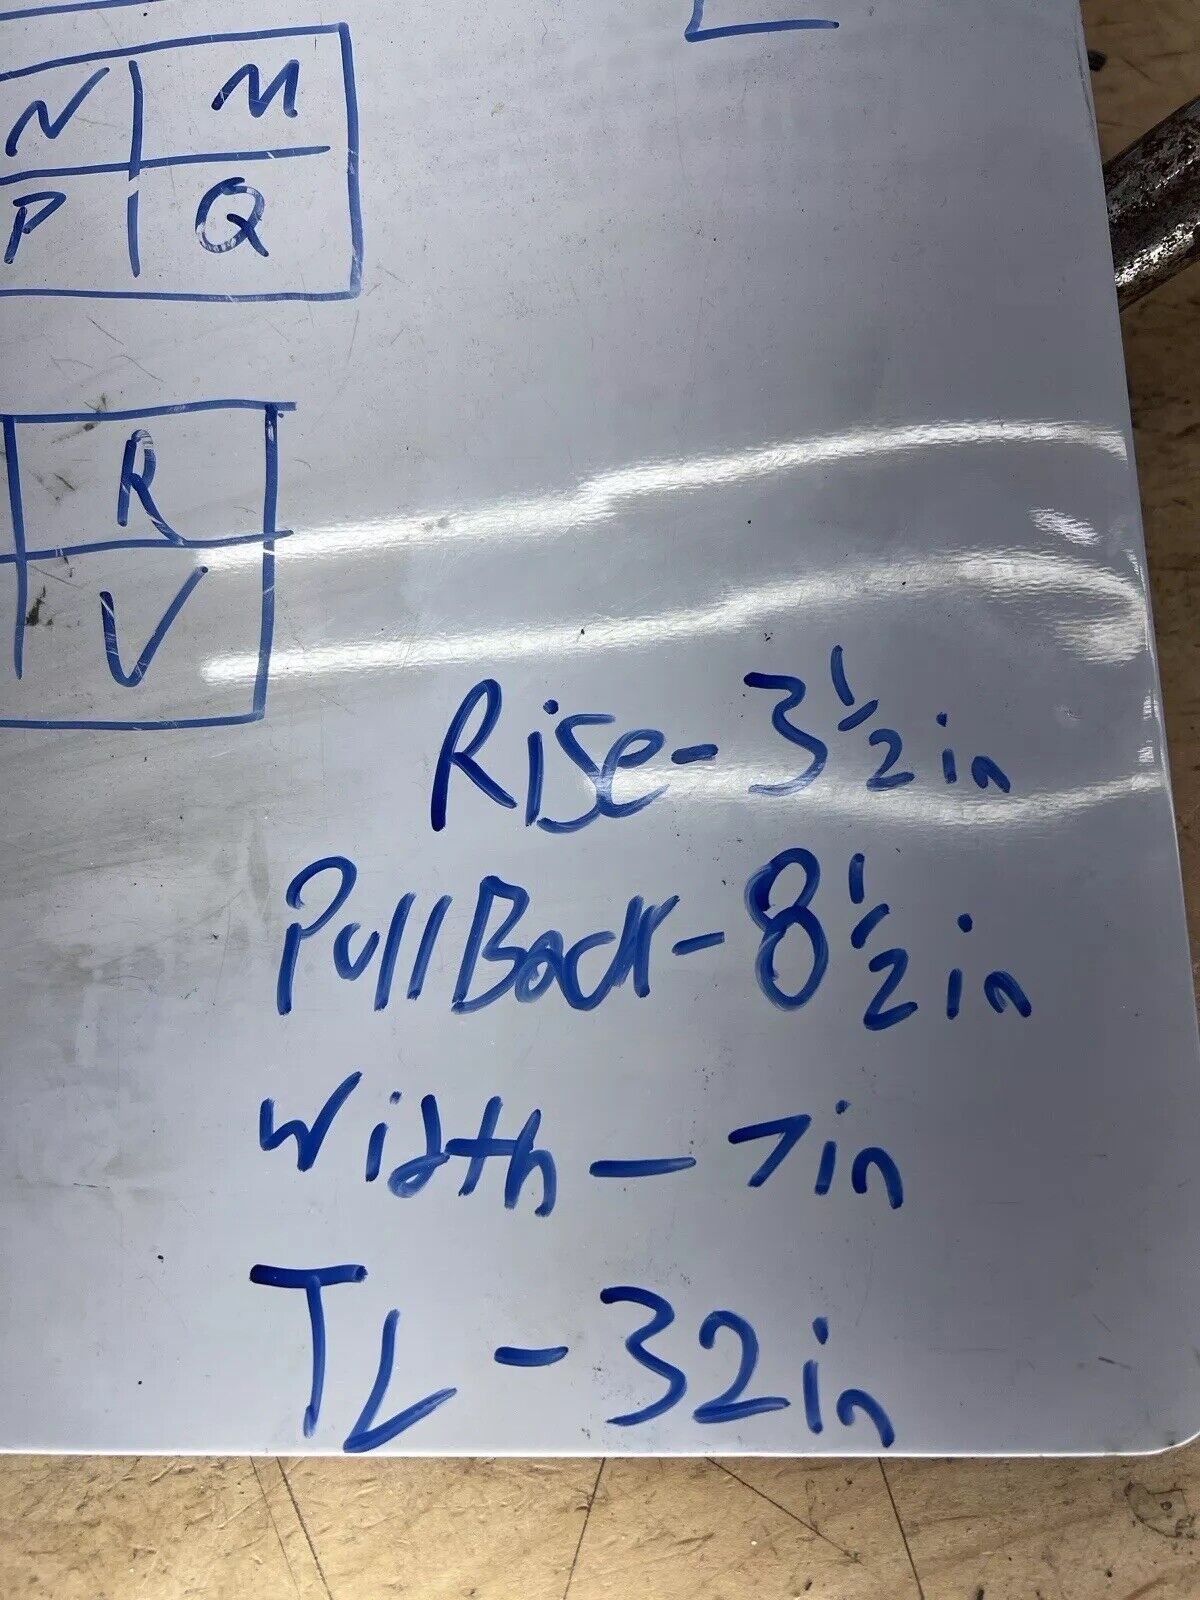 N M
P Q
R
V
Rise - 3 1/2 in
PullBack - 8 1/2 in
Width - 7in
TL - 32in